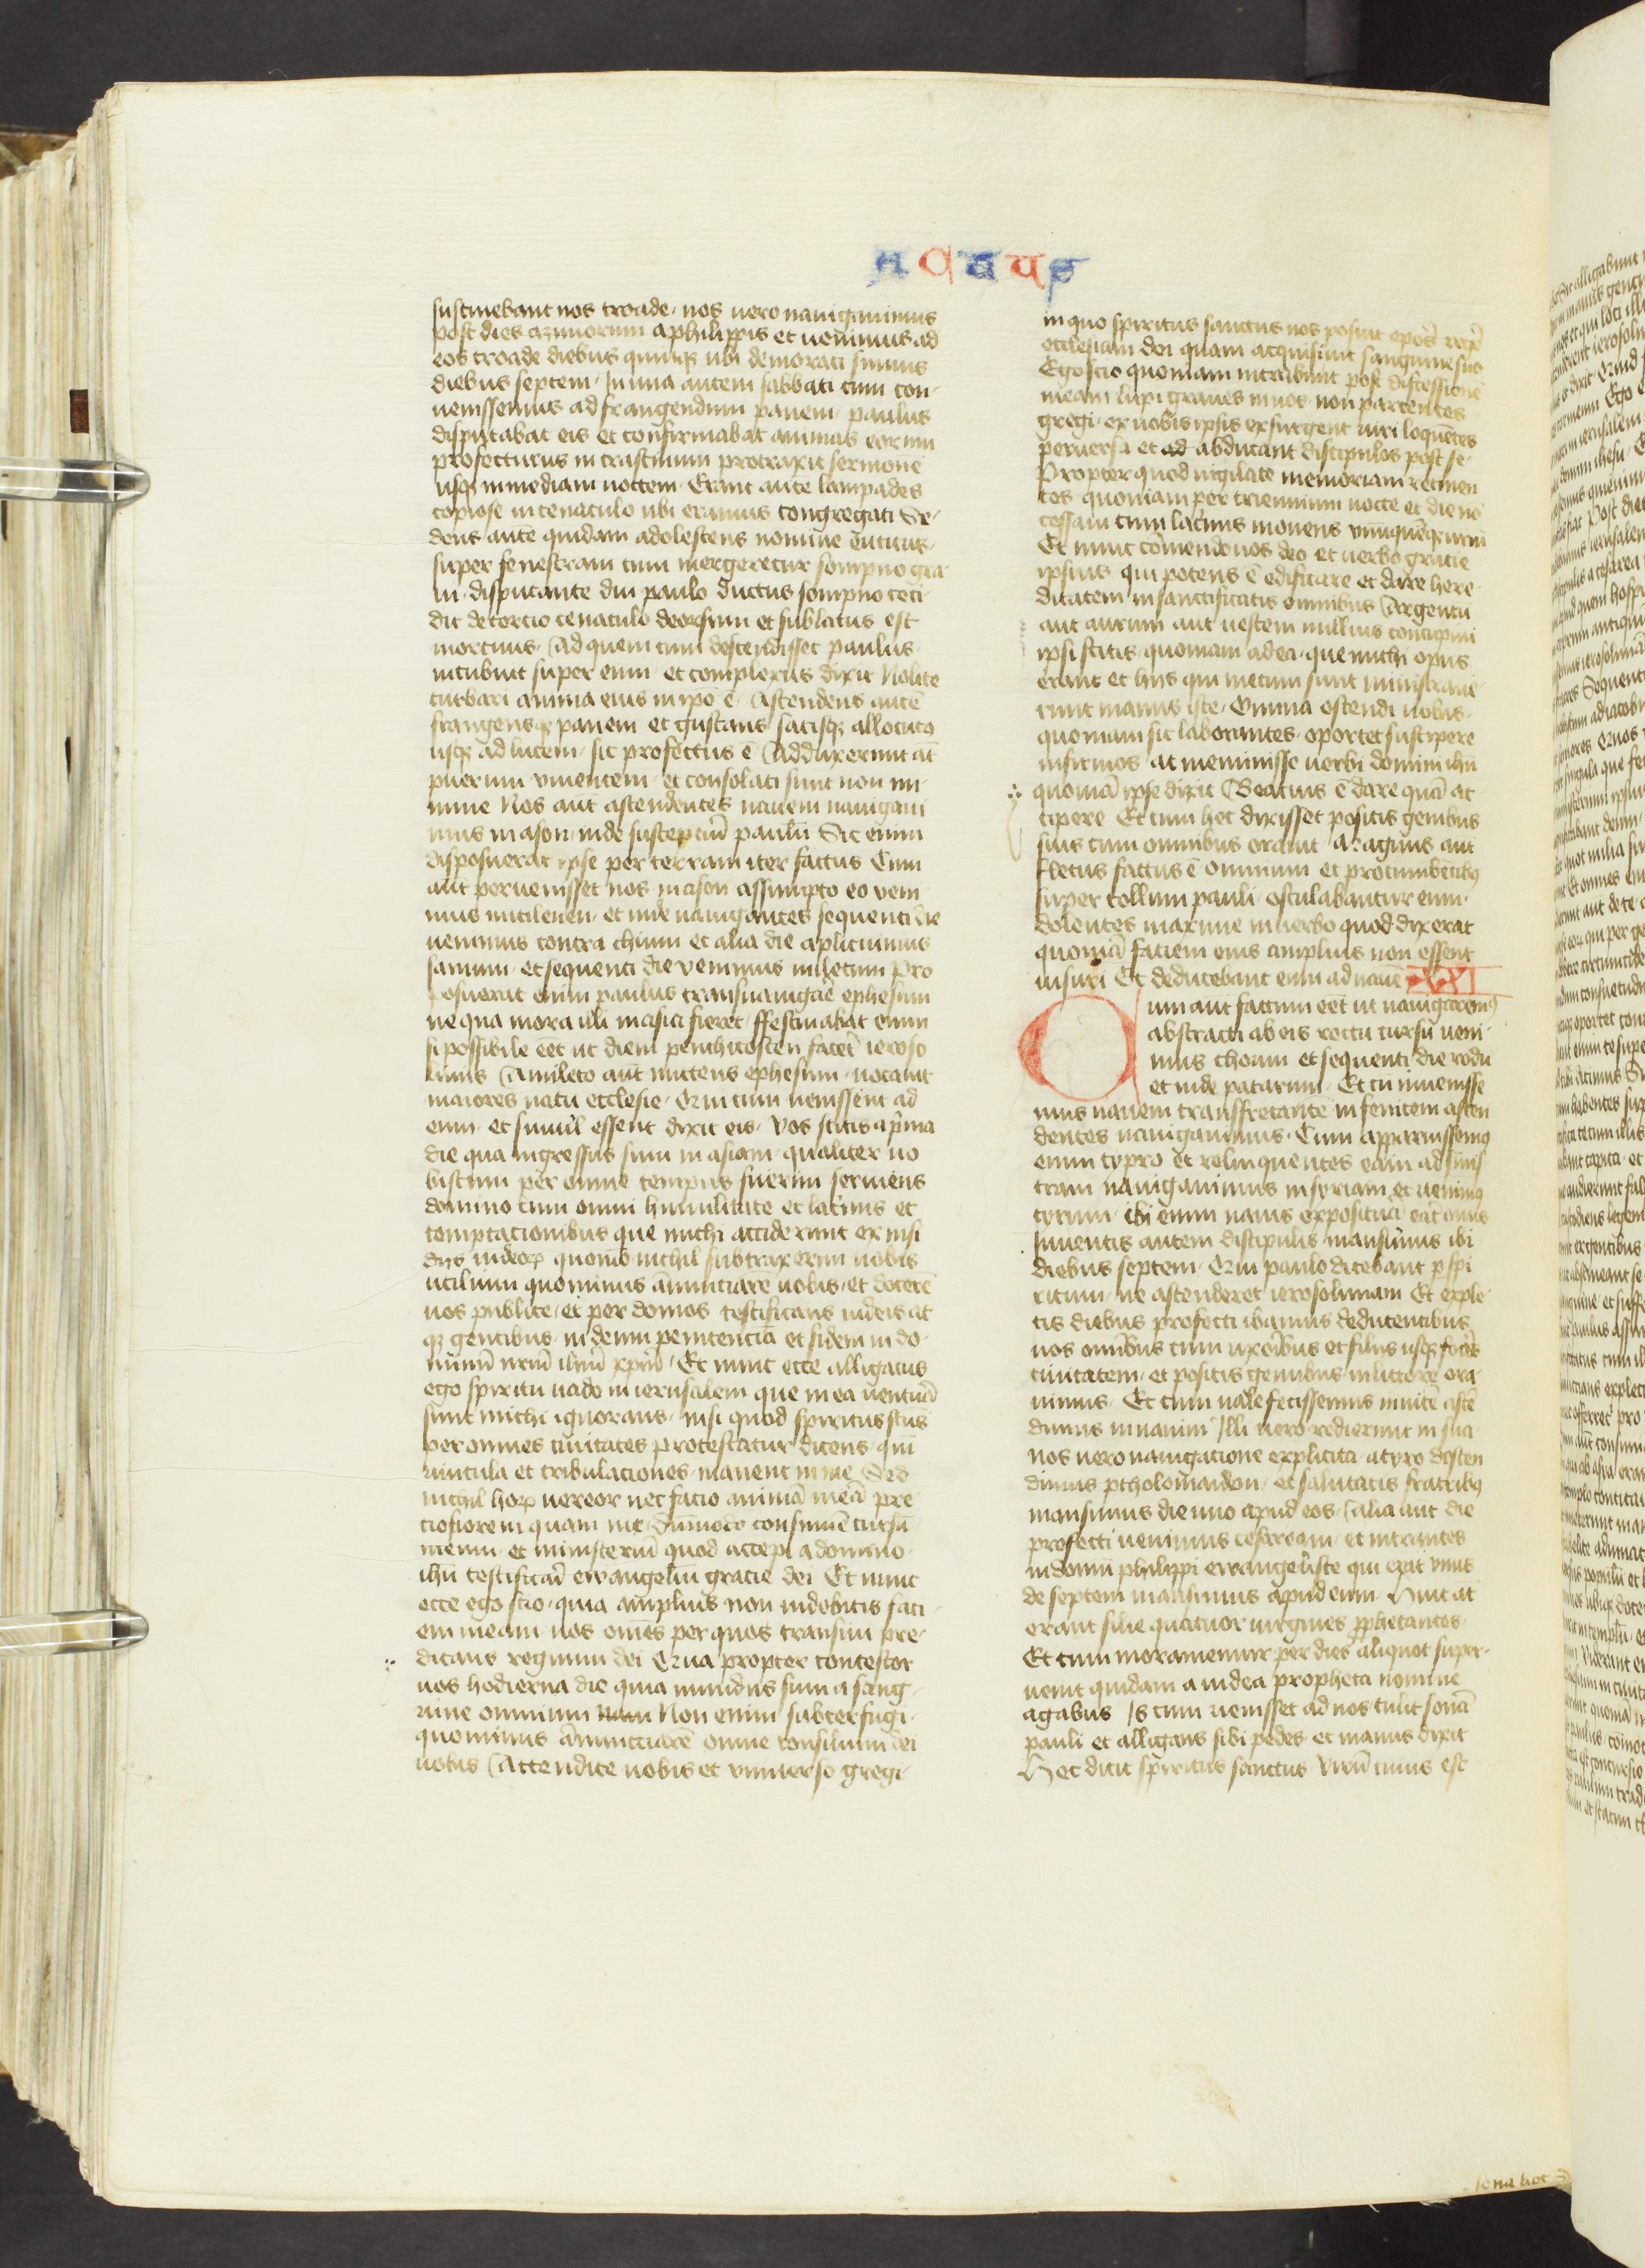 Actus
sustinebant nos troade · nos vero nauigauimus
post dies azimorum a philippis et uenimus ad
eos troade diebus quinqꝫ ubi demorati sumus
diebus septem · In una autem sabbati cum con-
uenissemus ad frangendum panem · paulus
disputabat eis et confirmabat animas eorum
profecturus in crastinum protraxit sermonē
usqꝫ in mediam noctem · Erant autē lampades
copiose in cenaculo ubi eramus congregati Se-
dens autē quidam adolescens nomine euticus ·
super fenestram cum mergeretur sompno gra
ui · disputante diu paulo ductus sompno ceci-
dit de tercio cenaculo deorsum et sublatus est
mortuus · Ad quem cum descendisset paulus ·
incubuit super eum · et complexus dixit Nolite
turbari anima eius in ipo ē · Ascendens autē
frangensqꝫ panem et gustans satisqꝫ allocutꝰ
usqꝫ ad lucem · sic profectus ē Adduxerunt aūt
puerum viuentem · et consolati sunt non mi-
nime Nos aūt ascendentes nauem nauigaui
mus in ason inde susceptuī paulū Sic enim
disposuerat ipse per terram iter factus Cum
aūt peruenisset nos in ason assumpto eo veni
mus mitilenen · et inde nauigantes sequenti die
uenimus contra chium et alia die aplicuimus
samum · et sequenti die venimus miletum Pro
posuerat enim paulus transnauigare ephesum
ne qua mora illi in asia fieret · ffestinabat enim
si possibile eēt ut diem penthicosten faceret ieroso
limis A mileto aūt mittens ephesum · uocauit
maiores natu ecclesie · Qui cum uenissent ad
eum · et simul essent dixit eis · Vos scitis a pma
die qua ingressus sum in asiam · qualiter uo
biscum per omne tempus fuerim seruiens
domino cum omni humilitate et lacimis et
temptacionibus que michi acciderunt ex insi
dijs iudeoꝝ quomō nichil subtraxerim uobis
utilium quominus ānunciare uobis · et docere
uos publice · et per domos testificans iudeis at
qꝫ gentibus · in deum penitenciā et fidem in do-
minum nrm ihm xpm · Et nunc ecce alligatus
ego spiritu uado in ierusalem que in ea uentura
sunt michi ignorans · nisi quod spiritus scus
per omnes ciuitates protestatur dicens · qm
uincula et tribulaciones · manent in me Sed
nichil hoꝝ uereor nec facio animā meā pre
ciosiorem quam me · dūmodo consumē cursū
meum · et ministeriū quod accepi a domino ·
ihu testificari ewangeliū gracie dei Et nunc
ecce ego scio · quia amplius non uidebitis faci-
em meam uos omēs per quos transiui pre-
dicans regnum dei Qua propter contestor
uos hodierna die quia mundus sum a sang
wine omnium Non enim subterfugi ·
quominus ānuncciarē omne consilium dei
uobis Attendite uobis et vniuerso gregi ·
in quo spiritus sanctus uos posuit epōs regē
ecclesiam dei quam acquisiuit sanguine suo
Ego scio quoniam intrabunt post discessionē
meam lupi graues in uos · non parcentes
gregi · ex uobis ipsis exsurgent uiri loquētes
peruersa et ad abducant discipulos post se ·
Propter quod uigilate memoriam retinen
tes · quoniam per triennium nocte et die nō
cessaui cum lacimis monens vnūquēqꝫ urm
Et nunc cōmendo uos deo et uerbo gracie
ipsius qui potens ē edificare et dare here-
ditatem in sanctificatis omnibus Argentū
aut aurum aut uestem nullius concupiui
ipsi scitis · quoniam ad ea · que michi opus
erant et hijs qui mecum sunt ministraue-
runt manus iste · Omnia ostendi uobis ·
quoniam sic laborantes · oportet suscipere
infirmos · at meminisse uerbi domini ihu
quoniā ipse dixit Beatius ē dare quā ac
cipere Et cum hec dixisset positis genibus
suis cum omnibus orauit Magnus aūt
fletus factus ē omnium et procumbentibꝫ
super collum pauli osculabantur eum ·
dolentes maxime in uerbo quod dixerat
quoniā faciem eius amplius non essent
uisuri Et deducebant eum ad nauē XXI
Cum aūt factum eēt ut nauigaremꝰ
abstracti ab eis recto cursu ueni-
mus choum et sequenti die rodū
et inde patarum · Et cū inuenisse
mus nauem transffretantē in fenicem ascen
dentes nauigauimus · Cum apparuissemꝰ
enim cypro et relinquentes eam ad sinis
tram nauigauimus in syriam et uenimꝰ
tyrum · ibi enim nauis expositura erat onus
Inuentis autem discipulis mansimus ibi
diebus septem · Qui paulo dicebant p spi
ritum · ne ascenderet ierosolimam Et exple-
tis diebus profecti ibamus deducentibus
nos omībus cum uxoribus et filiis usqꝫ foras
ciuitatem · et positis genibus in littore ora-
uimus · Et cum ualefecissemus inuicē ascē
dimus in nauim Illi uero redierunt in sua
nos uero nauigacione explicita · a tyro descen
dimus ptholomaidam · et salutatis fratribꝰ
mansimus die uno apud eos · Alia aūt die
profecti uenimus cesaream · et intrantes
in domū philippi ewangeliste qui erat vnus
de septem mansimus apud eum Huic at
erant filie quatuor uirgines pphetantes ·
Et cum moraremur per dies aliquot super-
uenit quidam a iudea propheta nomine
agabus Is cum uenisset ad nos tulit sonā
pauli et alligans sibi pedes et manus dixit
Hec dicit spiritus sanctus Virū cuius est
sona hec